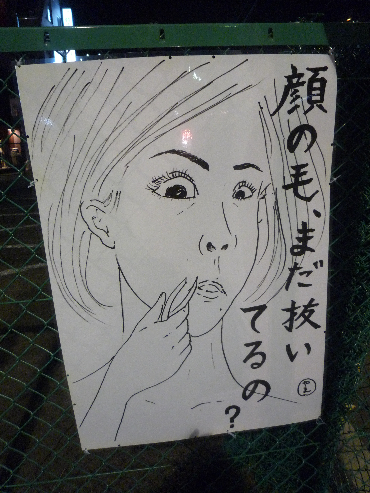 顔の毛、まだ抜い
てるの?